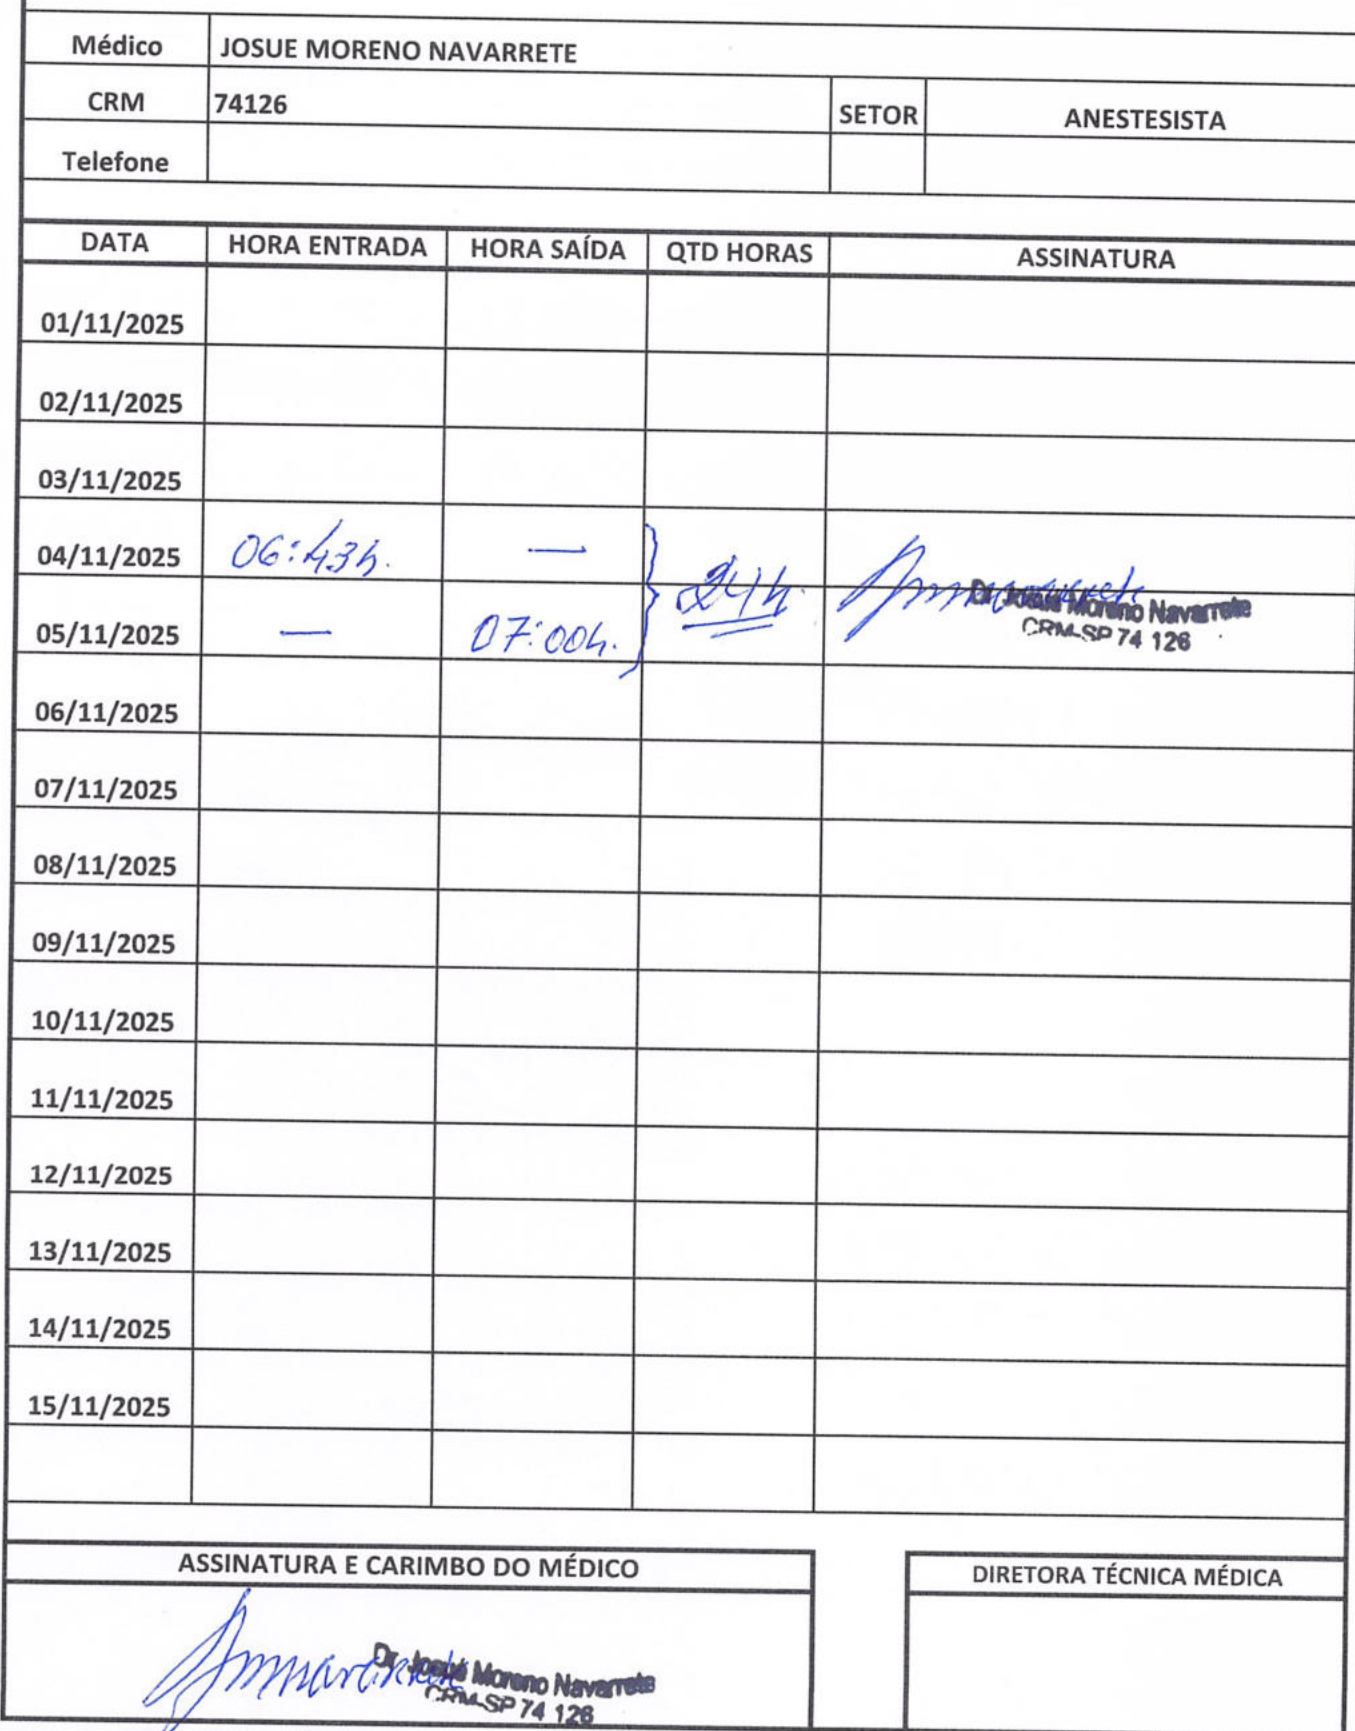 Médico JOSUE MORENO NAVARRETE
CRM 74126 SETOR ANESTESISTA
Telefone
DATA HORA ENTRADA HORA SAÍDA QTD HORAS ASSINATURA
01/11/2025
02/11/2025
03/11/2025
04/11/2025 06:43h. —
24h.
Dr. Josué Moreno Navarrete
05/11/2025 — 07:00h.
CRM-SP 74 126
06/11/2025
07/11/2025
08/11/2025
09/11/2025
10/11/2025
11/11/2025
12/11/2025
13/11/2025
14/11/2025
15/11/2025
ASSINATURA E CARIMBO DO MÉDICO DIRETORA TÉCNICA MÉDICA
Dr. Josué Moreno Navarrete
CRM-SP 74 126